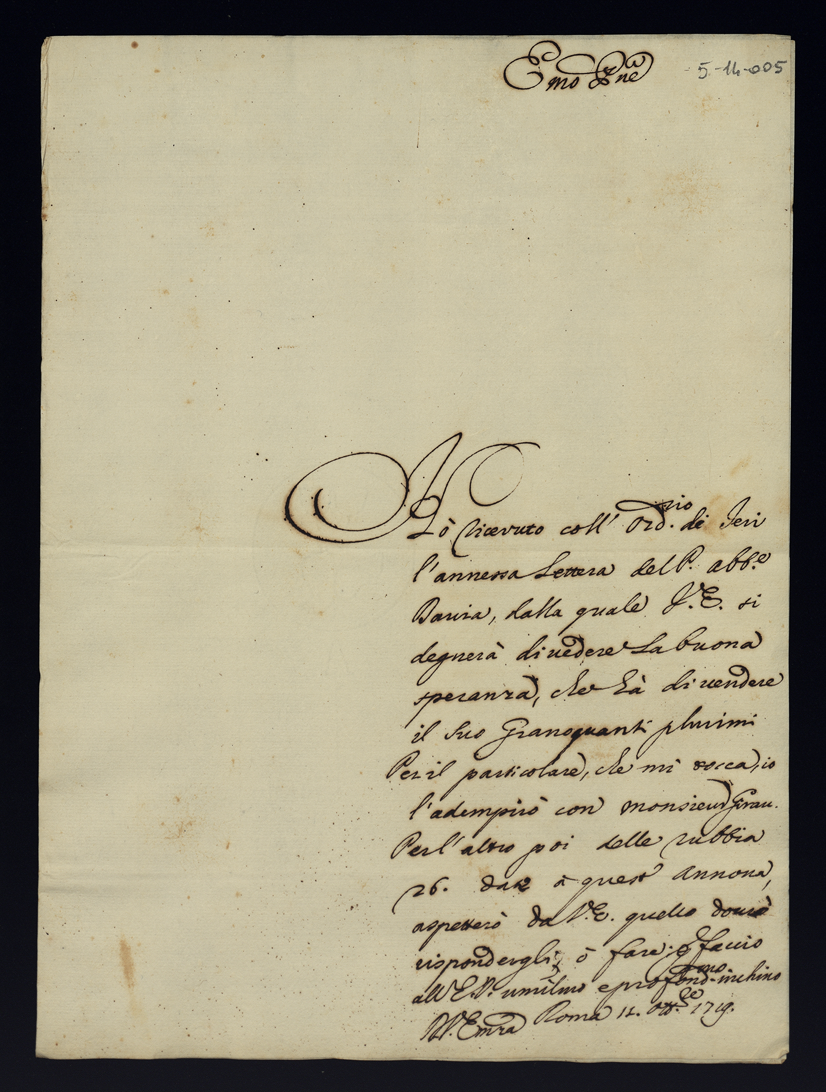 Emo Pne
5-14-005
Hò ricevuto coll' Ord.rio di Ieri
l'annessa Lettera del P. Abb.e
Bavia, dalla quale V.E. si
degnerà di vedere la buona
speranza, che hà di vendere
il suo Grano quanti plurimi
Per il particolare, che mi tocca, io
l'adempirò con monsieur Girau.
Per l'altro poi delle rubbia
26. date à quest' Annona,
aspetterò da V.E. quello dovrò
rispondergli, ò fare: e faccio
all'E.V. umilmo e profond.mo inchino
Di V. Emza Roma 11. Ott.e 1719.